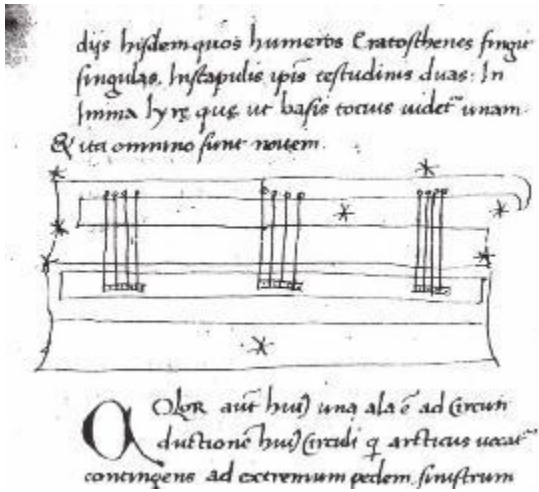 dijs hisdem quos humeros Eratosthenes fingit
singulas. In scapulis ipis testudinis duas: In
Imma lyrę quę ut basis totius uidet̃ unam
& ita omnino sunt nouem.
OLOR aut̃ hui) una ala ē ad Circun
ductionē hui) Circuli q̃ arcticus uocat̃
contingens ad extremum pedem sinistrum